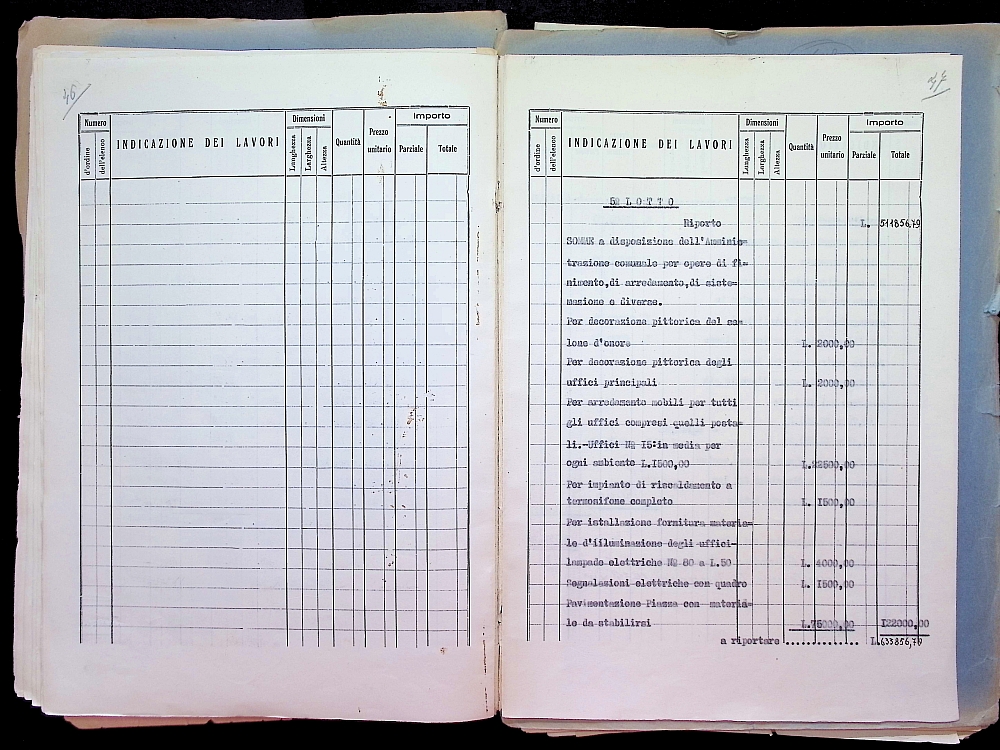 46
Numero
d'ordine
dell'elenco
INDICAZIONE DEI LAVORI
Dimensioni
Lunghezza
Larghezza
Altezza
Quantità
Prezzo
unitario
Importo
Parziale
Totale
47
Numero
d'ordine
dell'elenco
INDICAZIONE DEI LAVORI
Dimensioni
Lunghezza
Larghezza
Altezza
Quantità
Prezzo
unitario
Importo
Parziale
Totale
5º LOTTO
Riporto L. 511856,79
SOMME a disposizione dell'Amminis=
trazione comunale per opere di fi=
nimento,di arredamento,di siste=
mazione e diverse.
Per decorazione pittorica del sa=
lone d'onore L. 2000,00
Per decorazione pittorica degli
uffici principali L. 2000,00
Per arredamento mobili per tutti
gli uffici compresi quelli posta=
li.-Uffici Nº I5:in media per
ogni ambiente L.I500,00 L.22500,00
Per impianto di riscaldamento a
termosifone completo L. I500,00
Per istallazione fornitura materia=
le d'iiluminazione degli uffici-
lampade elettriche Nº 80 a L.50 L. 4000,00
Segnalazioni elettriche con quadro L. I500,00
Pavimentazione Piazza con materia=
le da stabilirsi L.75000,00 I22000,00
a riportare .............. L.633856,79